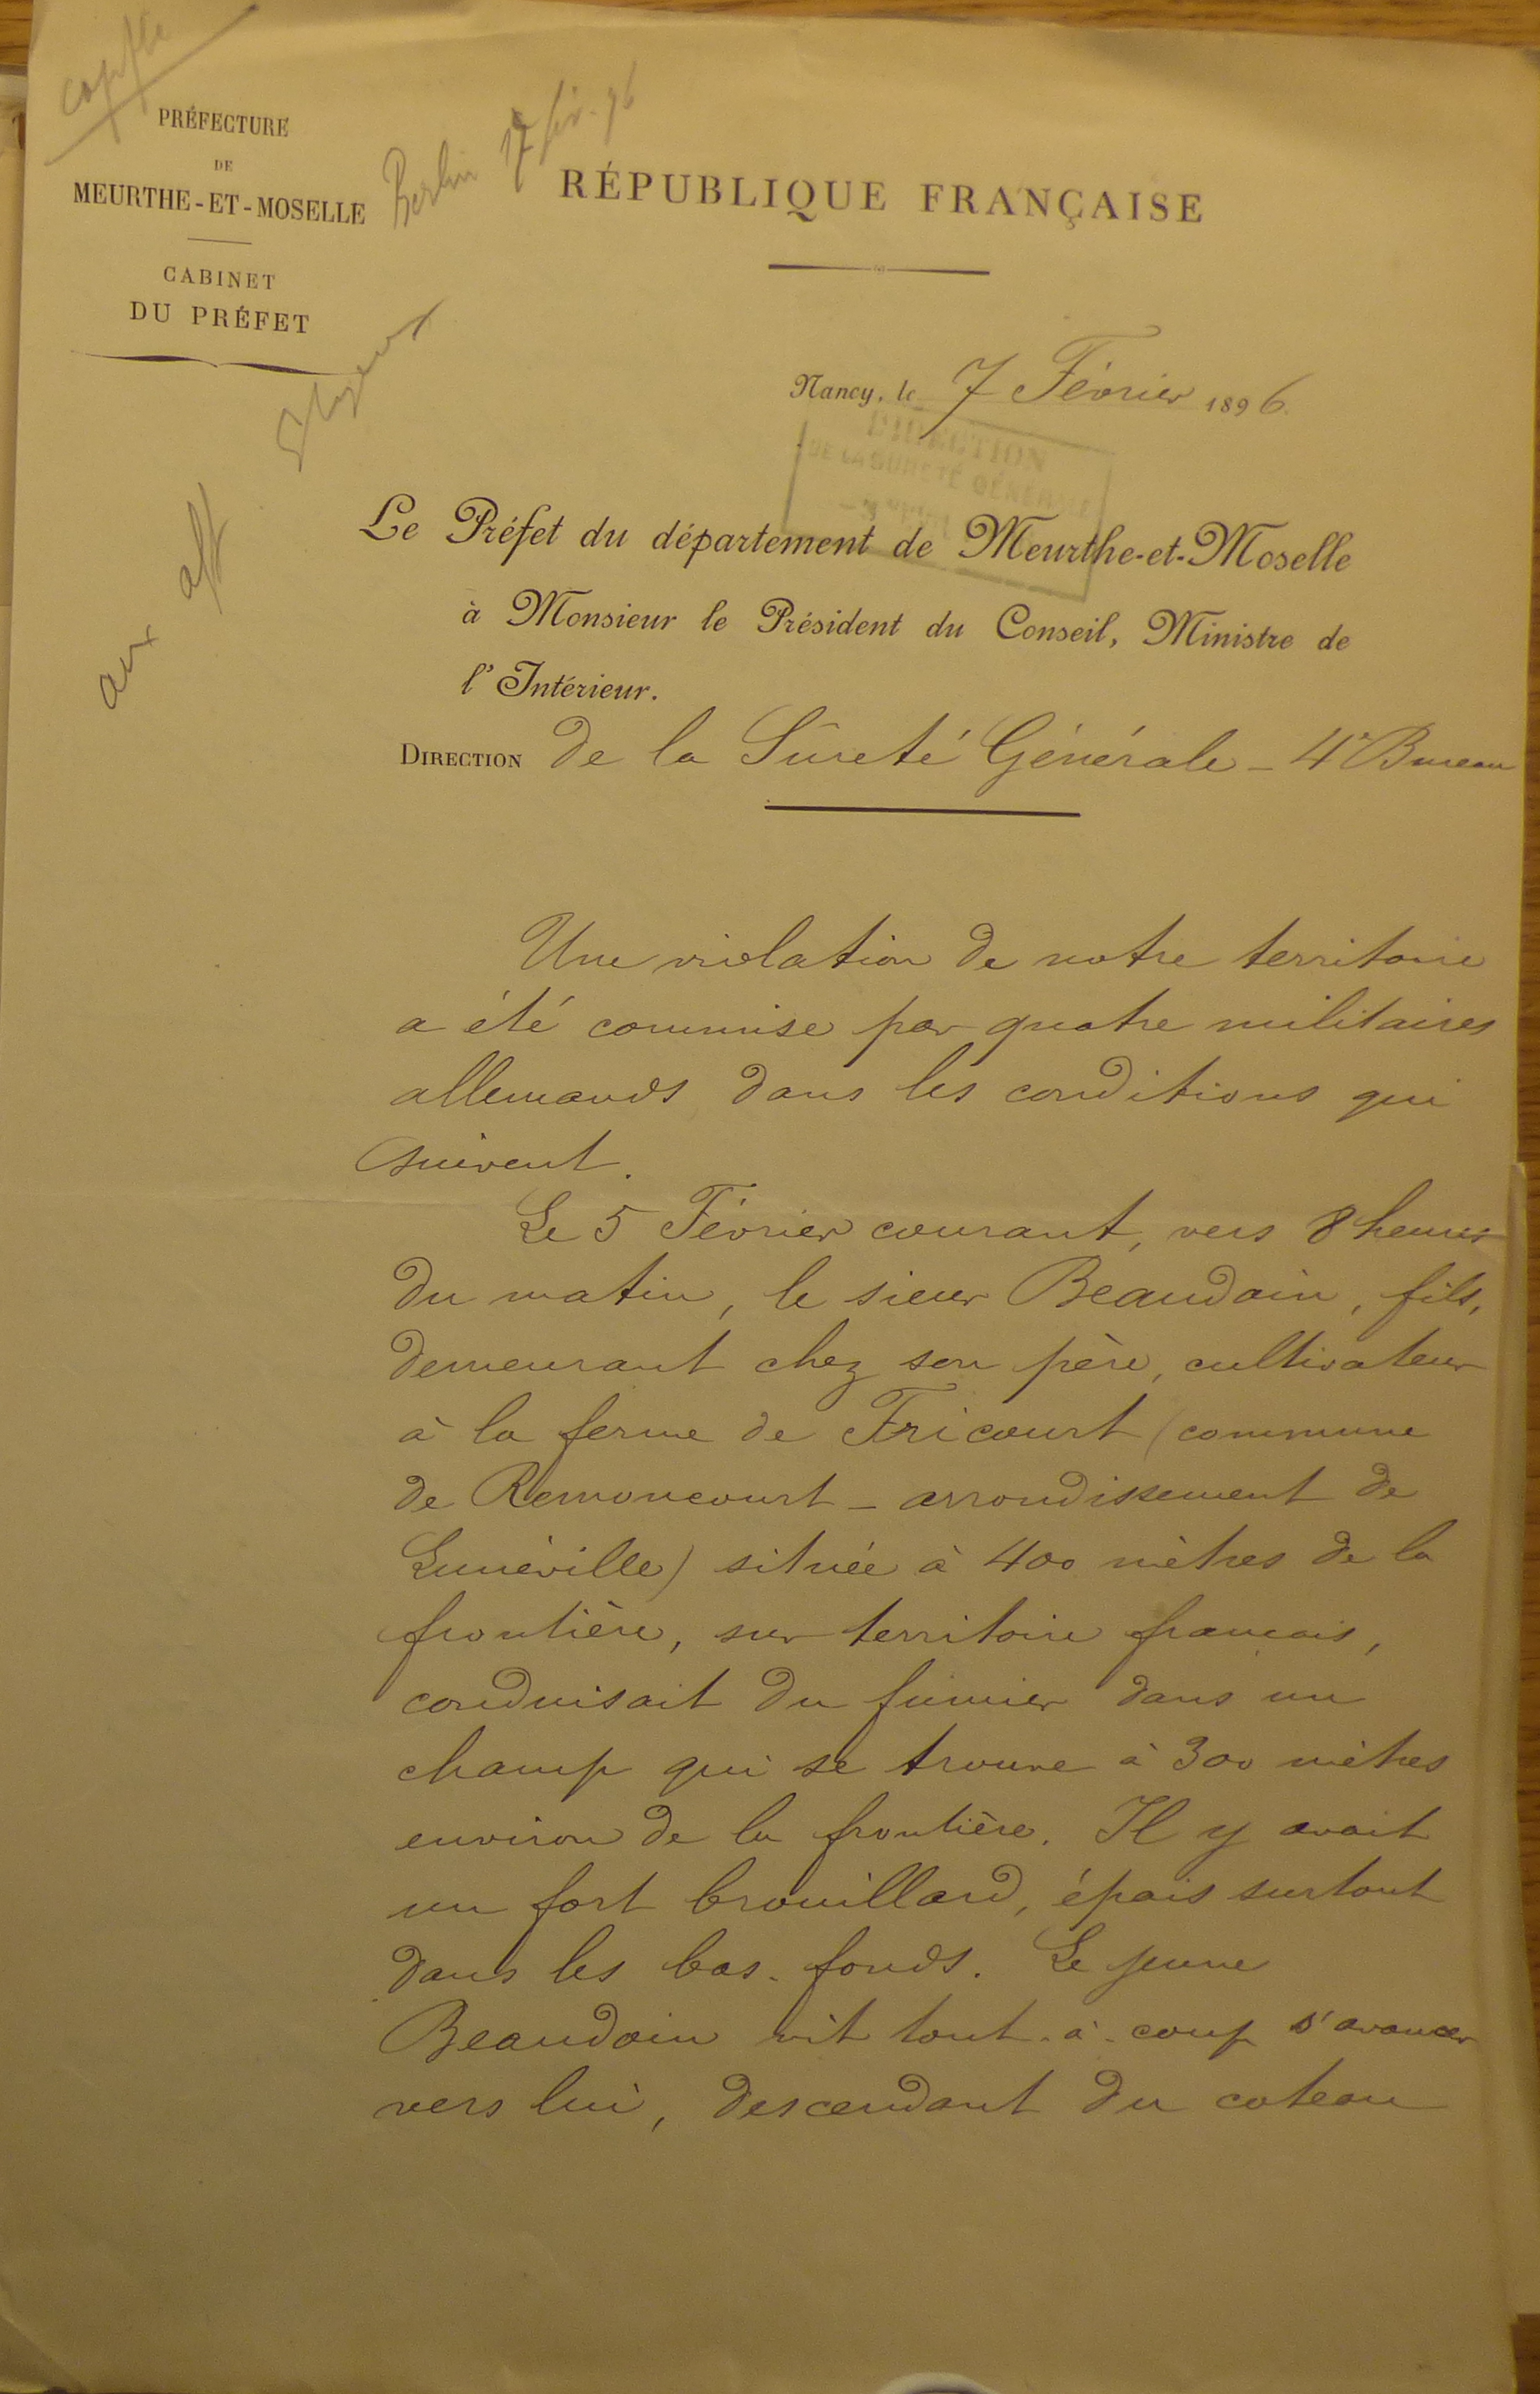 copie
PRÉFECTURE
DE
MEURTHE-ET-MOSELLE
CABINET
DU PRÉFET
Berlin 17 fév. 96
RÉPUBLIQUE FRANÇAISE
Nancy, le 7 Février 1896
DIRECTION
DE LA SURETÉ GÉNÉRALE
Le Préfet du département de Meurthe-et-Moselle
à Monsieur le Président du Conseil, Ministre de
l'Intérieur.
DIRECTION de la Sûreté Générale _ 4e Bureau
aux aff
Une violation de notre territoire
a été commise par quatre militaires
allemands dans les conditions qui
suivent.
Le 5 Février courant, vers 8 heures
du matin, le sieur Beaudoin, fils,
demeurant chez son père, cultivateur
à la ferme de Fricourt (commune
de Remoncourt _ arrondissement de
Lunéville) située à 400 mètres de la
frontière, sur territoire francais,
conduisait du fumier dans un
champ qui se trouve à 300 mètres
environ de la frontière. Il y avait
un fort brouillard, épais surtout
dans les bas-fonds. Le jeune
Beaudoin vit tout-à-coup s'avancer
vers lui, descendant du coteau